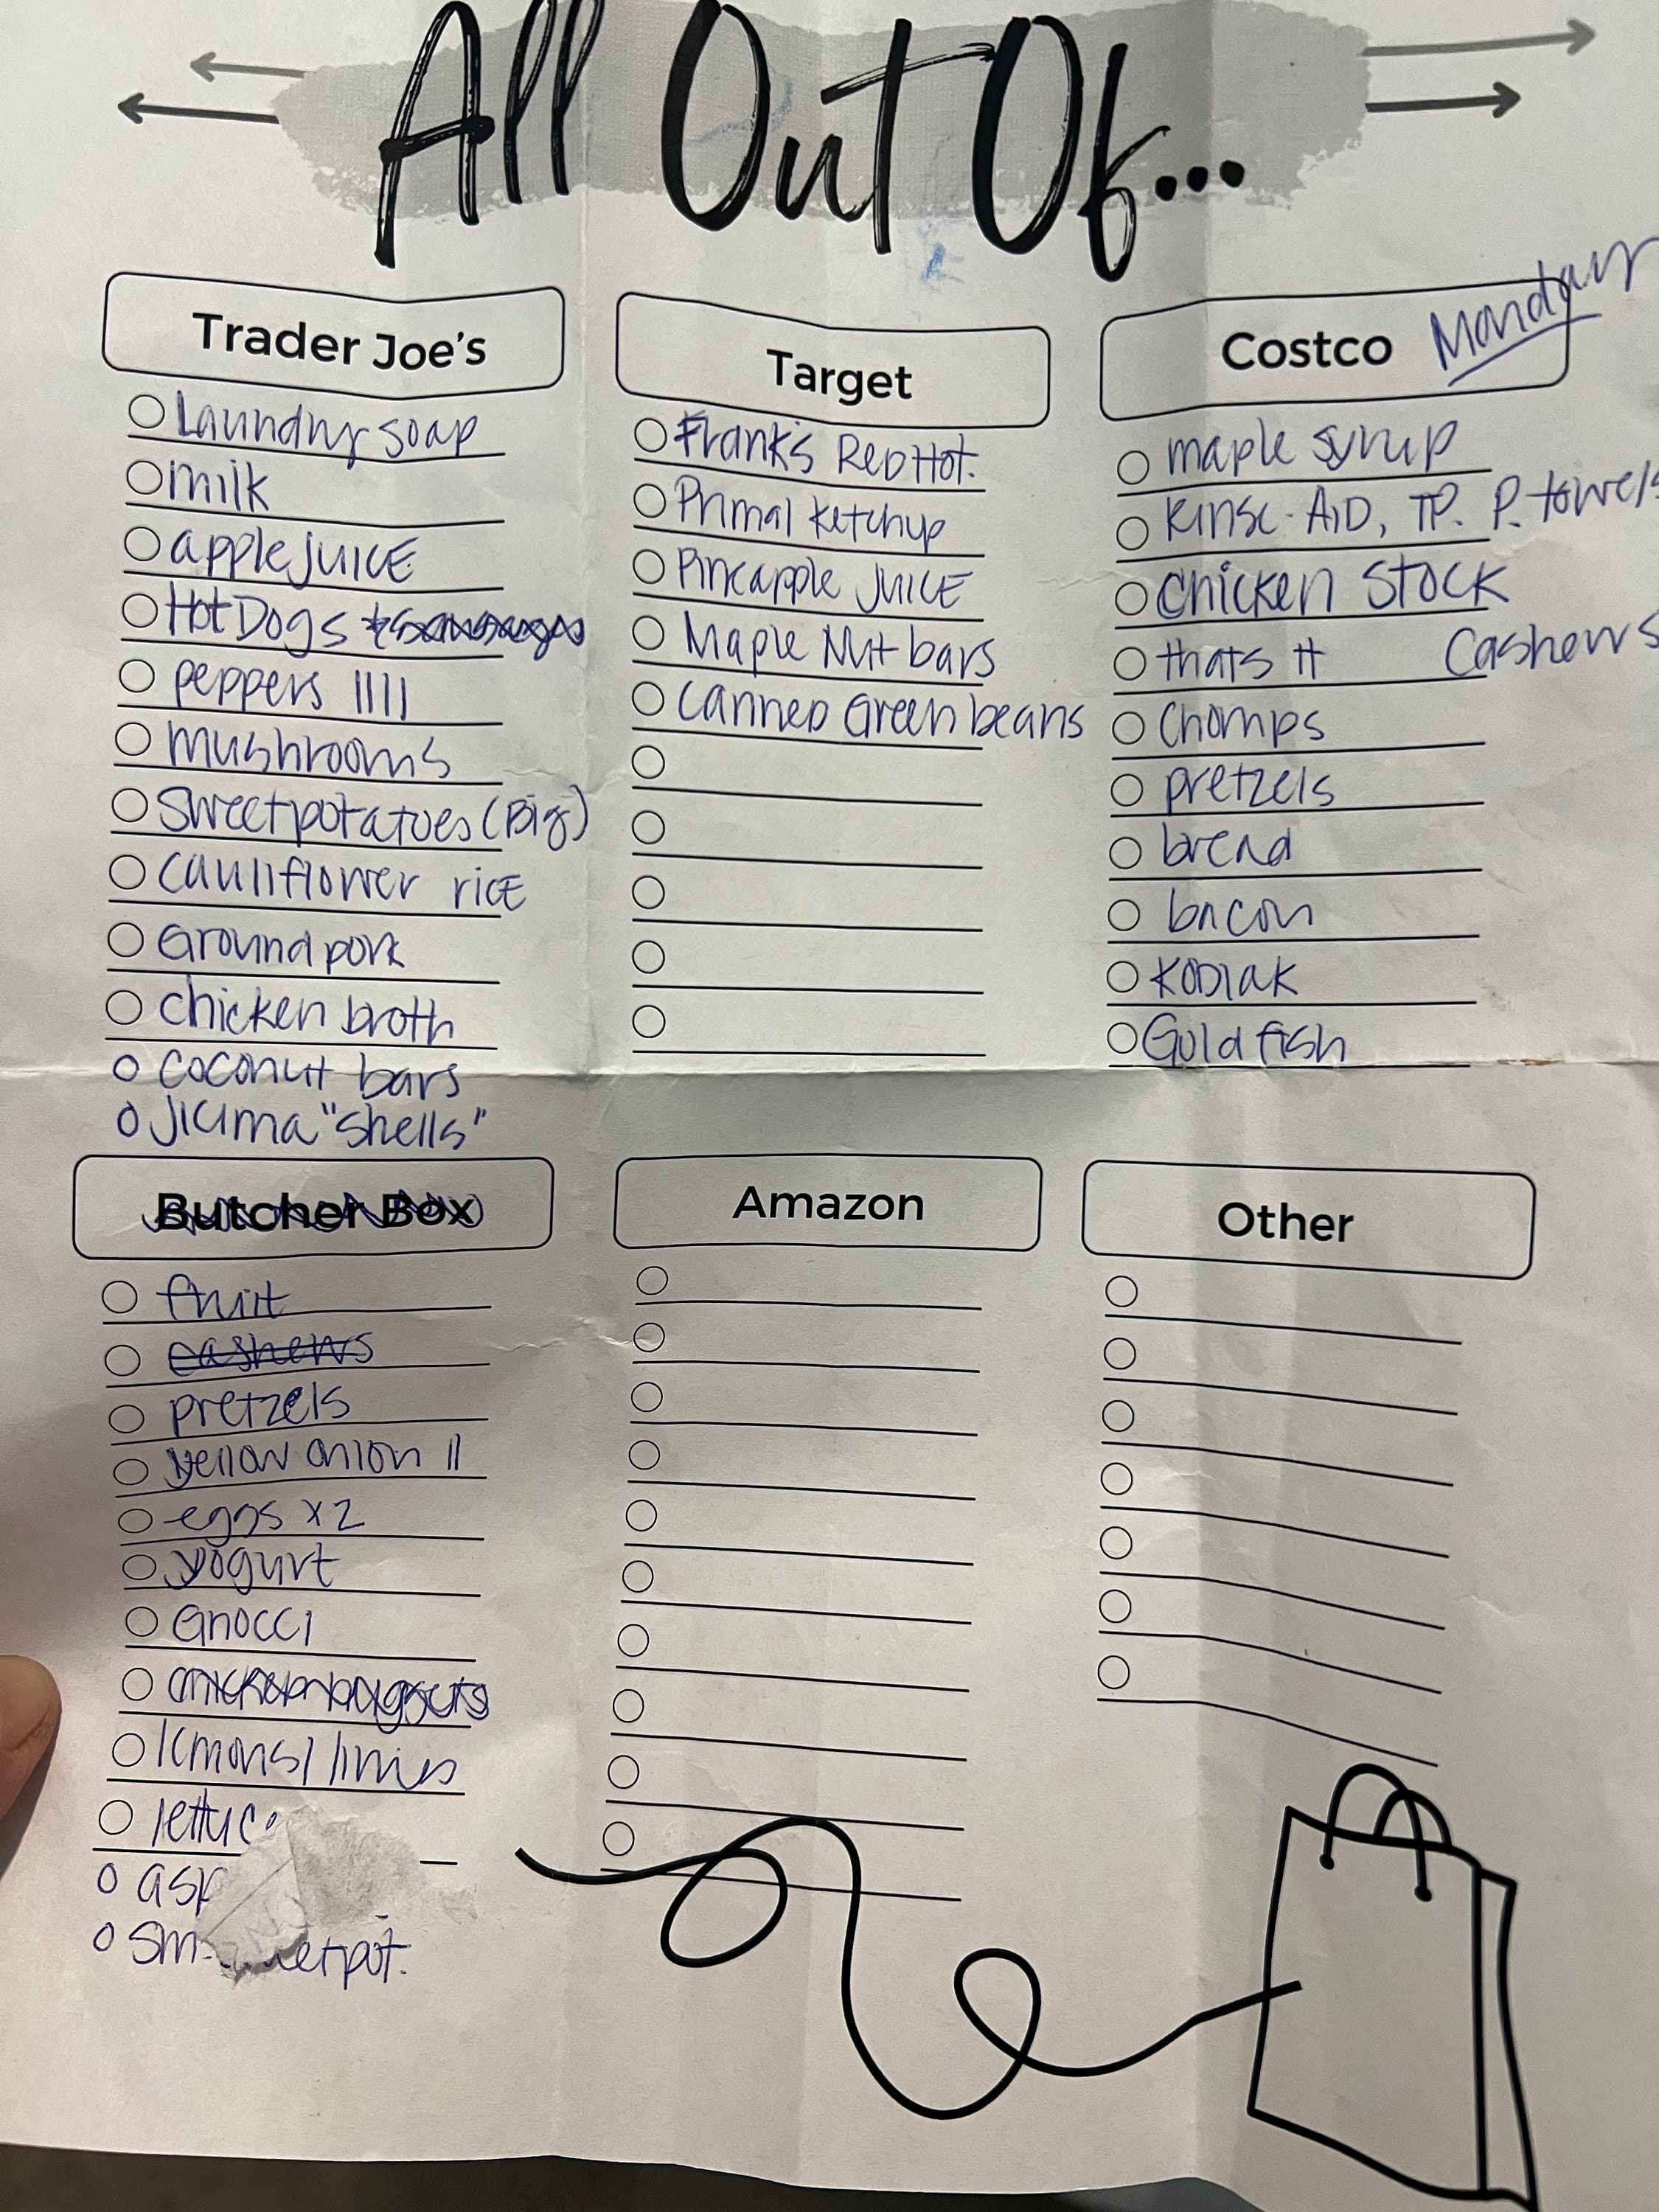 All Out Of...
Trader Joe's
Laundry soap
milk
apple JUICE
Hot Dogs
peppers IIII
mushrooms
Sweet potatoes (Big)
cauliflower rice
Ground pork
chicken broth
coconut bars
Jicima "shells"
Target
Frank's Red Hot.
Primal ketchup
Pineapple JUICE
Maple Nut bars
canned Green beans
Costco Monday
maple syrup
Rinse-AID, TP. P. towels
Chicken Stock
thats it Cashews
Chomps
pretzels
bread
bacon
KODIAK
Gold fish
Butcher Box
fruit
cashews
pretzels
yellow onion II
eggs x2
yogurt
Gnocci
chicken nuggets
lemons/limes
Amazon
Other